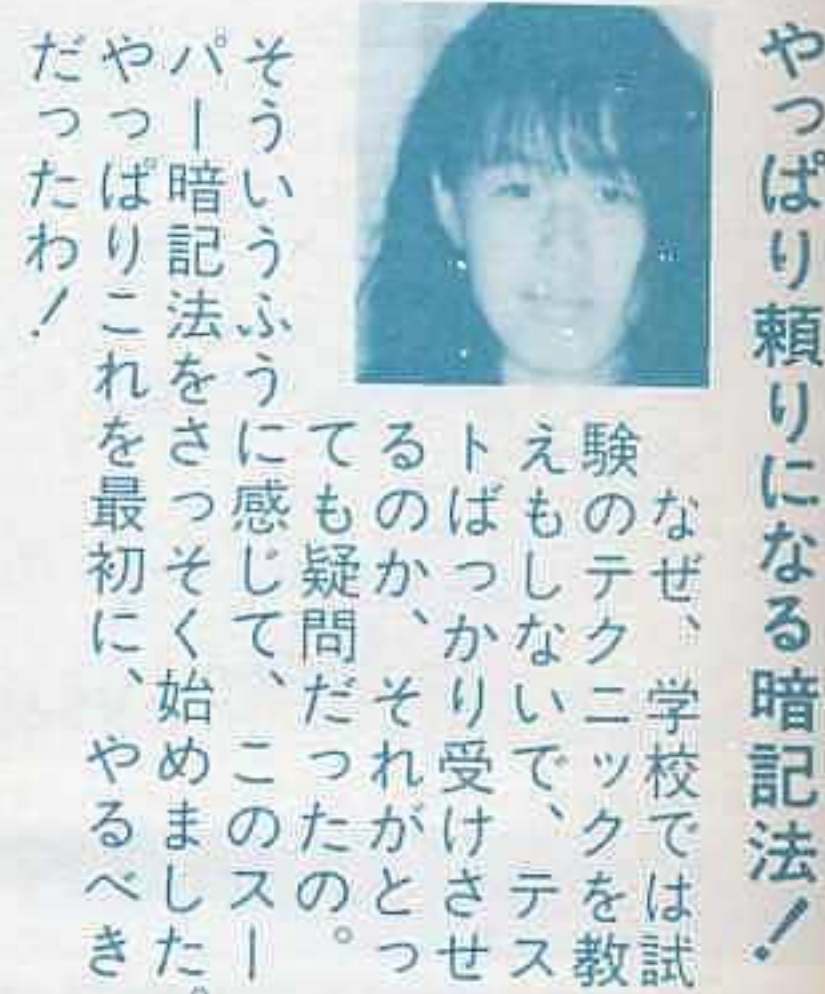 やっぱり頼りになる暗記法！
なぜ、学校では試
験のテクニックを教
えもしないで、テス
トばっかり受けさせ
るのか、それがとっ
ても疑問だったの。
そういうふうに感じて、このスー
パー暗記法をさっそく始めました。
やっぱりこれを最初に、やるべき
だったわ！